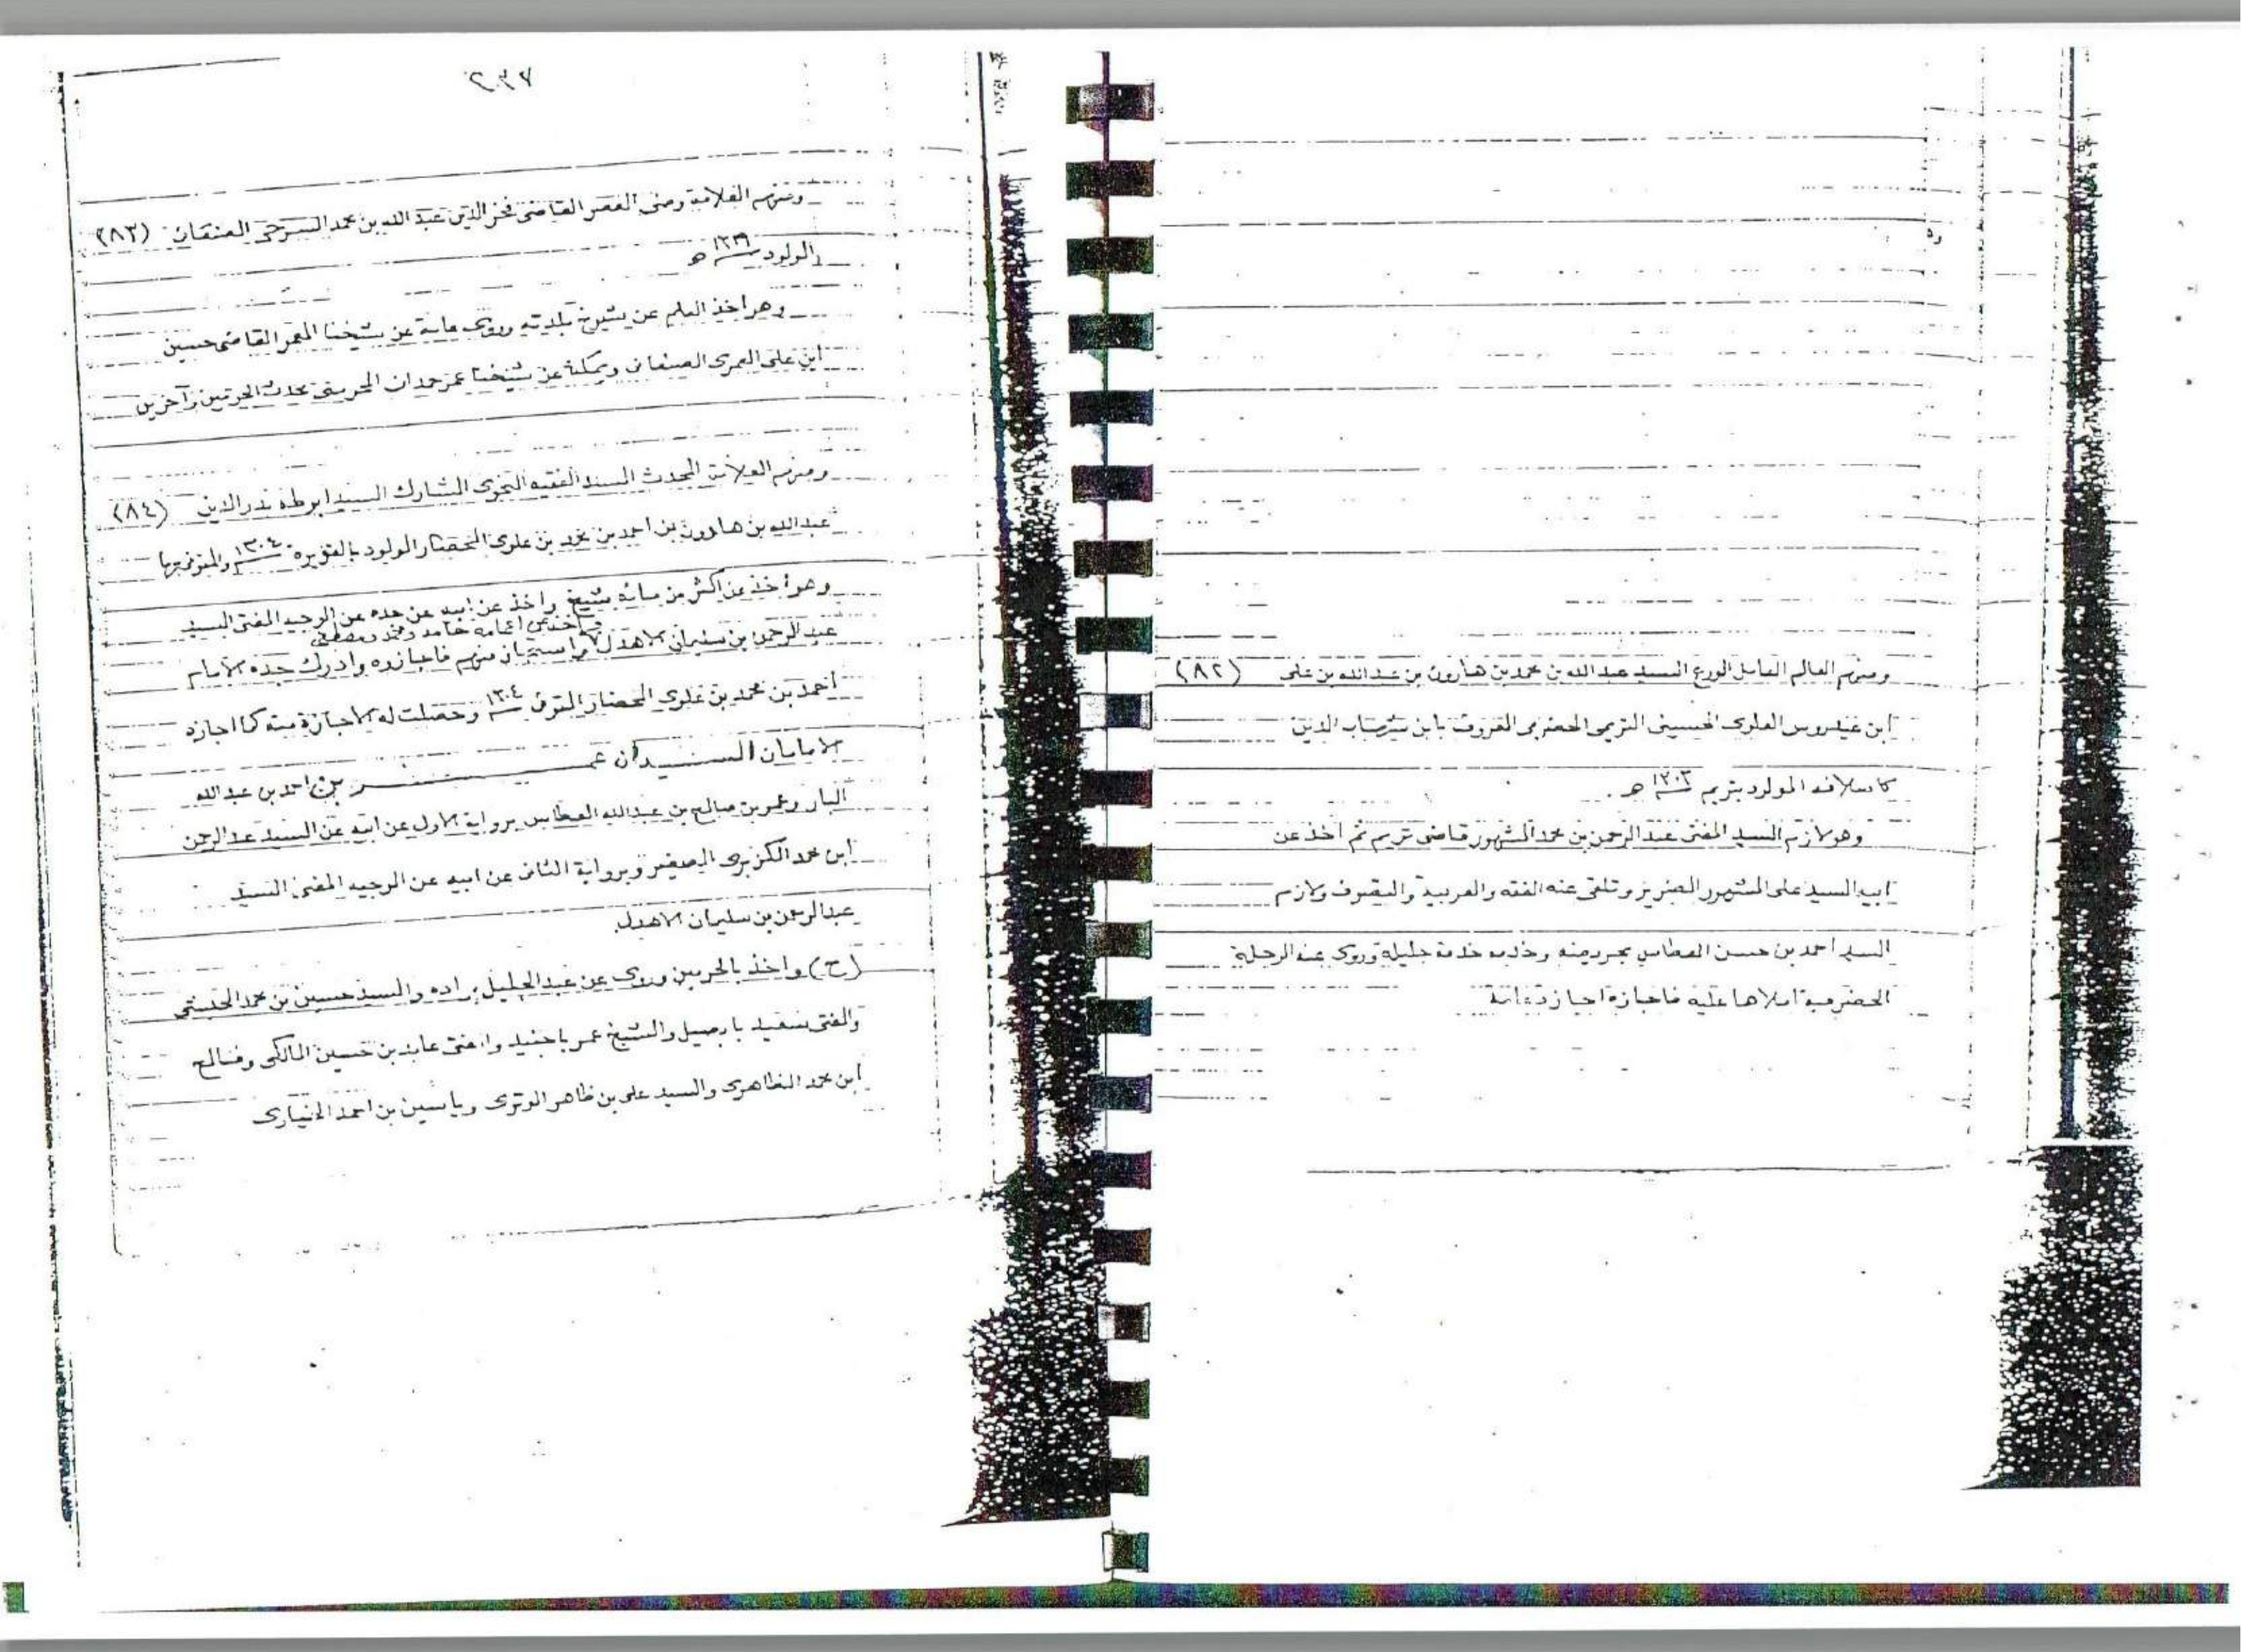 ومنهم العالم العامل الورع السيد عبد الله بن محمد بن هارون بن عبد الله بن على (٨٢)
ابن عيدروس العلوى الحسينى التريمى الحضرمى المعروف بابن شهاب الدين
كاسلافه المولود بتريم ١٣٠٣ هـ .
وهو لازم السيد المفتى عبد الرحمن بن محمد المشهور قاضى تريم ثم اخذ عن
ابيه السيد على المشهور الضرير وتلقى عنه الفقه والعربية والتصوف ولازم
السيد احمد بن حسن العطاس بحريضه وخدمه خدمة جليلة وروى عنه الرحلة
الحضرمية املاها عليه فاجازه اجازة عامة
٢٣٧
ومنهم العلامة مفتى القاضى فخر الدين عبد الله بن محمد السرحى الصنعانى (٨٣)
المولود هـ
وهو اخذ العلم عن شيوخ بلدته وروى عامة عن شيخنا المعمر القاضى حسين
ابن على العمرى الصنعانى وبمكة عن شيخنا عمر حمدان المحرسى محدث الحرمين وآخرين
ومنهم العلامة المحدث المسند الفقيه النحوى المشارك السيد ابو طه بدر الدين (٨٤)
عبد الله بن هادون بن احمد بن محمد بن علوى المحضار المولود بالقويره ١٣٠٤ والمتوفى بها
وهو أخذ عن اكثر من مائة شيخ واخذ عن ابيه عن جده عن الوجيه المفتى السيد
عبد الرحمن بن سليمان الاهدل واخذ عن اعمامه حامد ومحمد ومصطفى واستجاز منهم فاجازوه وادرك جده الامام
احمد بن محمد بن علوى المحضار المتوفى ١٣٠٤ وحصلت له الاجازة منه كما اجازه
الامامان السيدان عمر بن احمد بن عبد الله
البار وعمر بن صالح بن عبد الله العطاس برواية الاول عن ابيه عن السيد عبد الرحمن
ابن محمد الكزبرى الصغير وبرواية الثانى عن ابيه عن الوجيه المفتى السيد
عبد الرحمن بن سليمان الاهدل
(ح) واخذ بالحرمين وروى عن عبد الجليل براده والسيد حسين بن محمد الحبشى
والمفتى سعيد بابصيل والشيخ عمر باجنيد والمفتى عابد بن حسين المالكى وفالح
ابن محمد الظاهرى والسيد على بن ظاهر الوترى وياسين بن احمد الخيارى